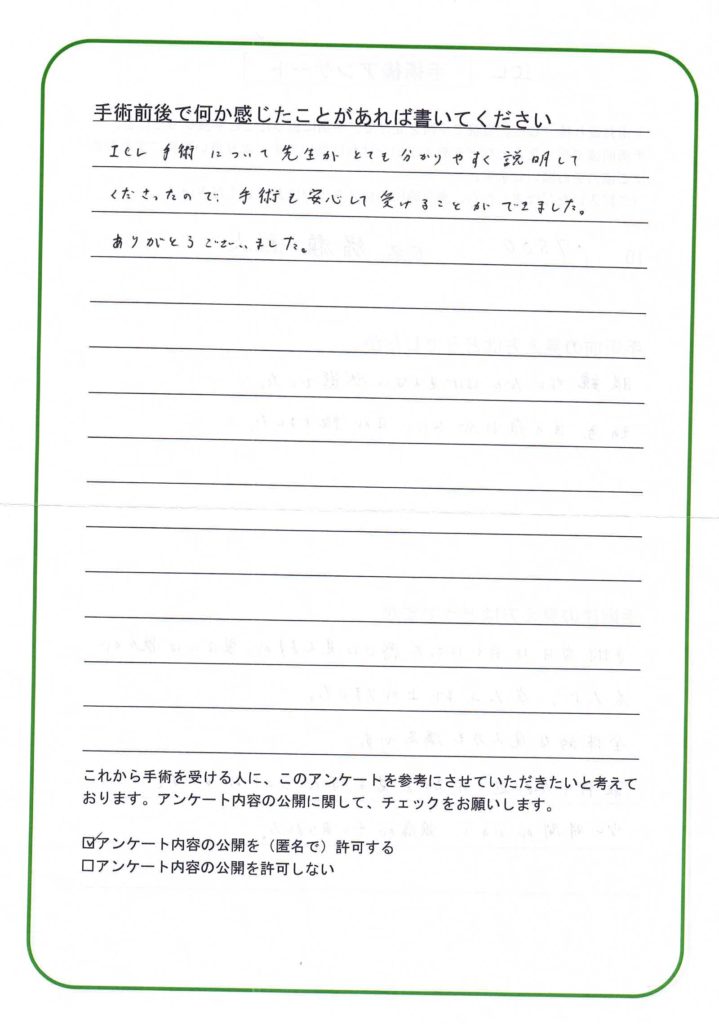 手術前後で何か感じたことがあれば書いてください
ICL 手術 について 先生が とても 分かりやすく 説明して
くださったので、手術も安心して 受けることが できました。
ありがとうございました。
これから手術を受ける人に、このアンケートを参考にさせていただきたいと考えて
おります。アンケート内容の公開に関して、チェックをお願いします。
☑アンケート内容の公開を（匿名で）許可する
□アンケート内容の公開を許可しない